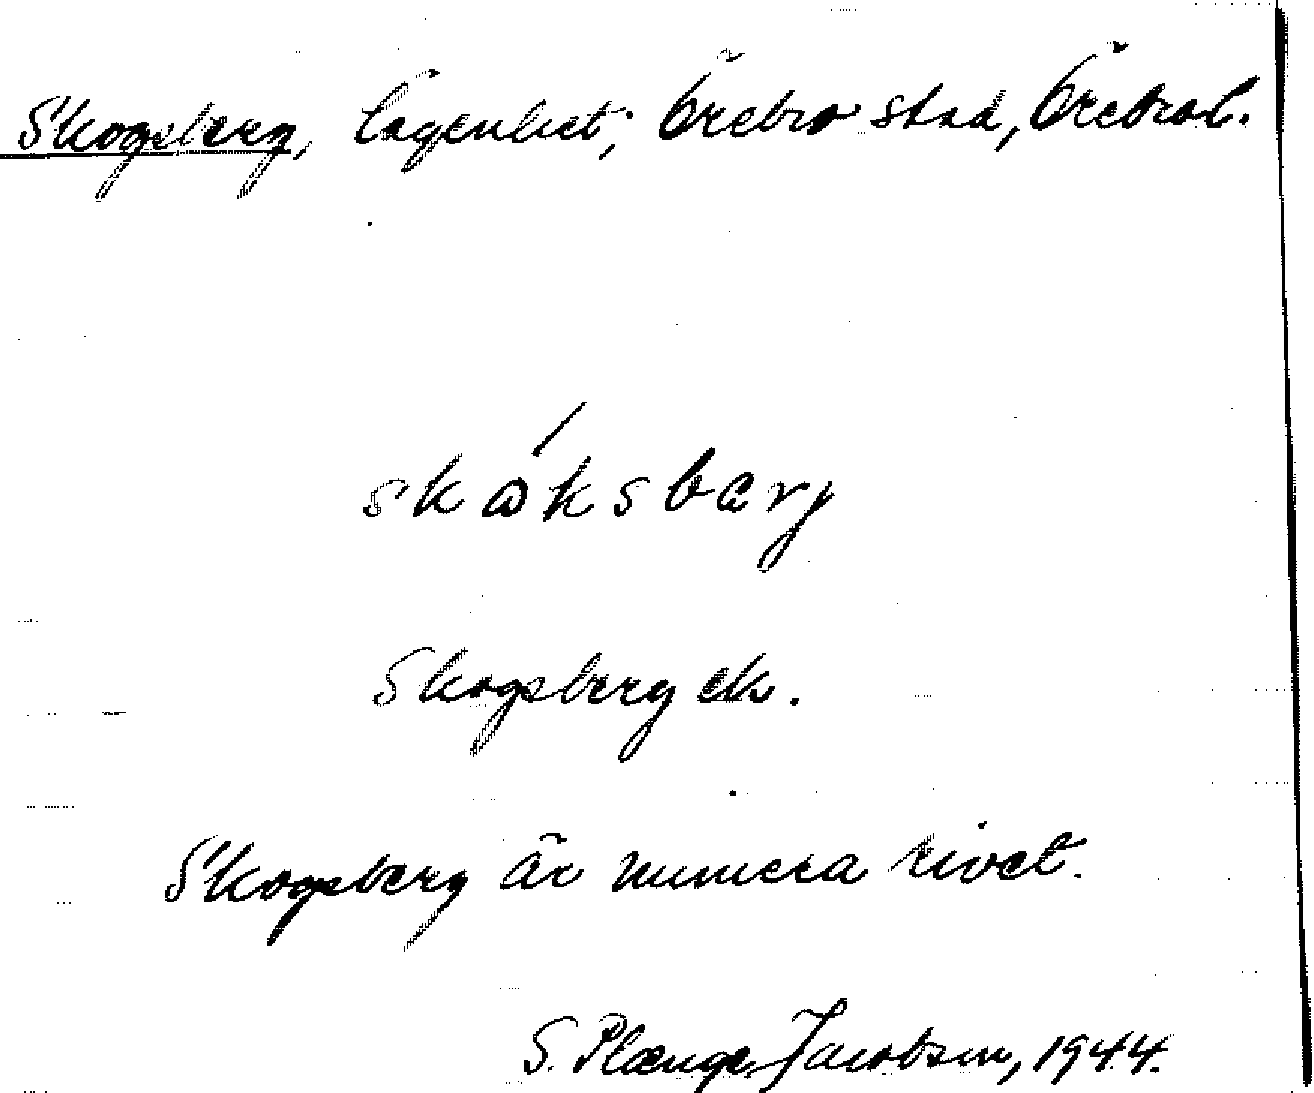 Skogsberg, lägenhet; Örebro stad, Örebro l.
skóksbarj
Skogsberg ek.
Skogsberg är numera rivet.
S. Plænge Jacobson, 1944.